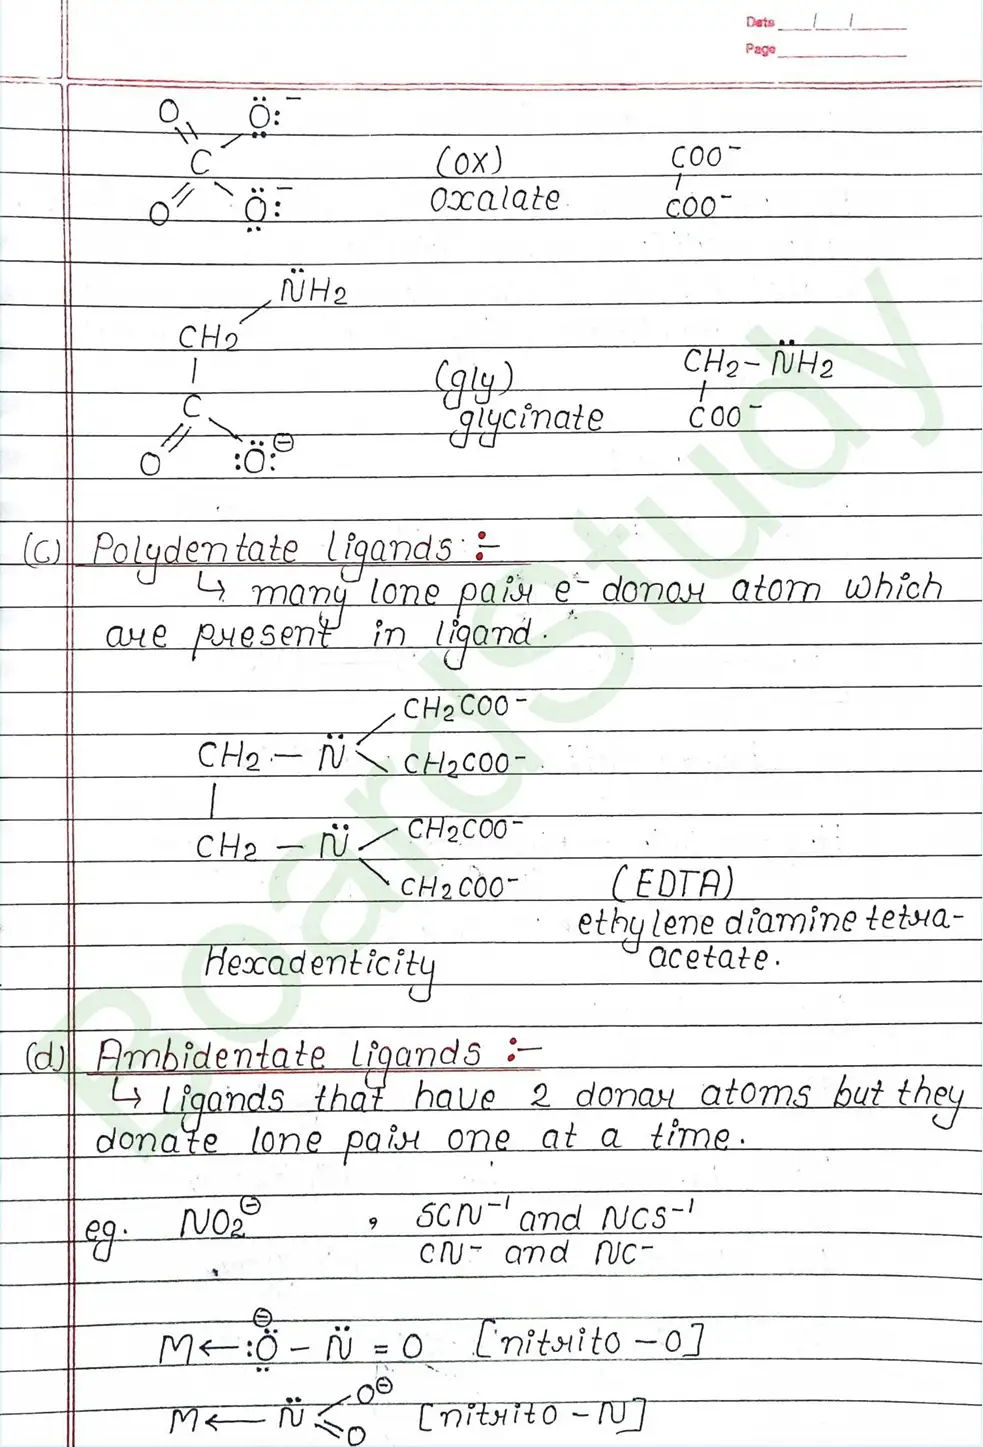 Date / /
Page
O Ö: −
C
O Ö: −
(ox)
oxalate
COO−
COO−
N̈H2
CH2
C
O :Ö: ⊖
(gly)
glycinate
CH2 − N̈H2
COO−
(c) Polydentate ligands :-
↳ many lone pair e− donar atom which
are present in ligand.
CH2COO−
CH2 − N̈
CH2COO−
CH2COO−
CH2 − N̈
CH2COO−
(EDTA)
ethylene diamine tetra-
acetate.
Hexadenticity
(d) Ambidentate ligands :-
↳ ligands that have 2 donar atoms but they
donate lone pair one at a time.
eg. NO2⊖ , SCN−1 and NCS−1
CN− and NC−
M ← :Ö − N̈ = O [nitrito − O]
M ← N̈ O⊖ O [nitrito − N]
BoardStudy